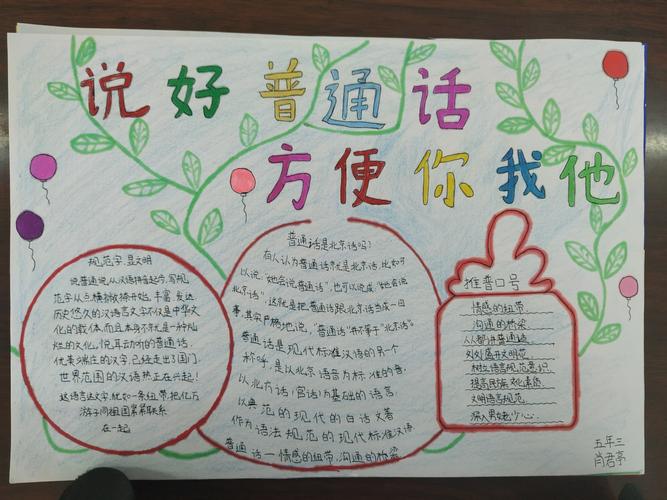 说好普通话
方便你我他
规范字,显文明
说普通话,从汉语拼音起步,写规
范字从点横撇捺开始。丰富、发达
历史悠久的汉语言文字不仅是中华文
化的载体,而且本身就是一种灿
烂的文化,悦耳动听的普通话,
优美端庄的汉字,已经走出了国门,
世界范围的汉语热正在兴起!
这语言这文字,犹如一条纽带,把亿万
游子同祖国紧紧联系
在一起。
普通话是北京话吗?
有人认为普通话就是北京话,比如可
以说“她会说普通话”,也可以说成“她会说
北京话”。这就是把普通话跟北京话当成一回
事,其实严格地说,“普通话”并不等于“北京话”。
普通话是现代标准汉语的另一个
称呼,是以北京语音为标准的音,
以北方话(官话)为基础的语言,
以典范的现代的白话文著
作为语法规范的现代标准汉语
普通话一情感的纽带,沟通的桥梁
推普口号
情感的纽带
沟通的桥梁
人人都讲普通话
处处盛开文明花
树立语言规范意识
提高民族文化素质
文明语言规范
深入男女老少心
五年三
肖君亭